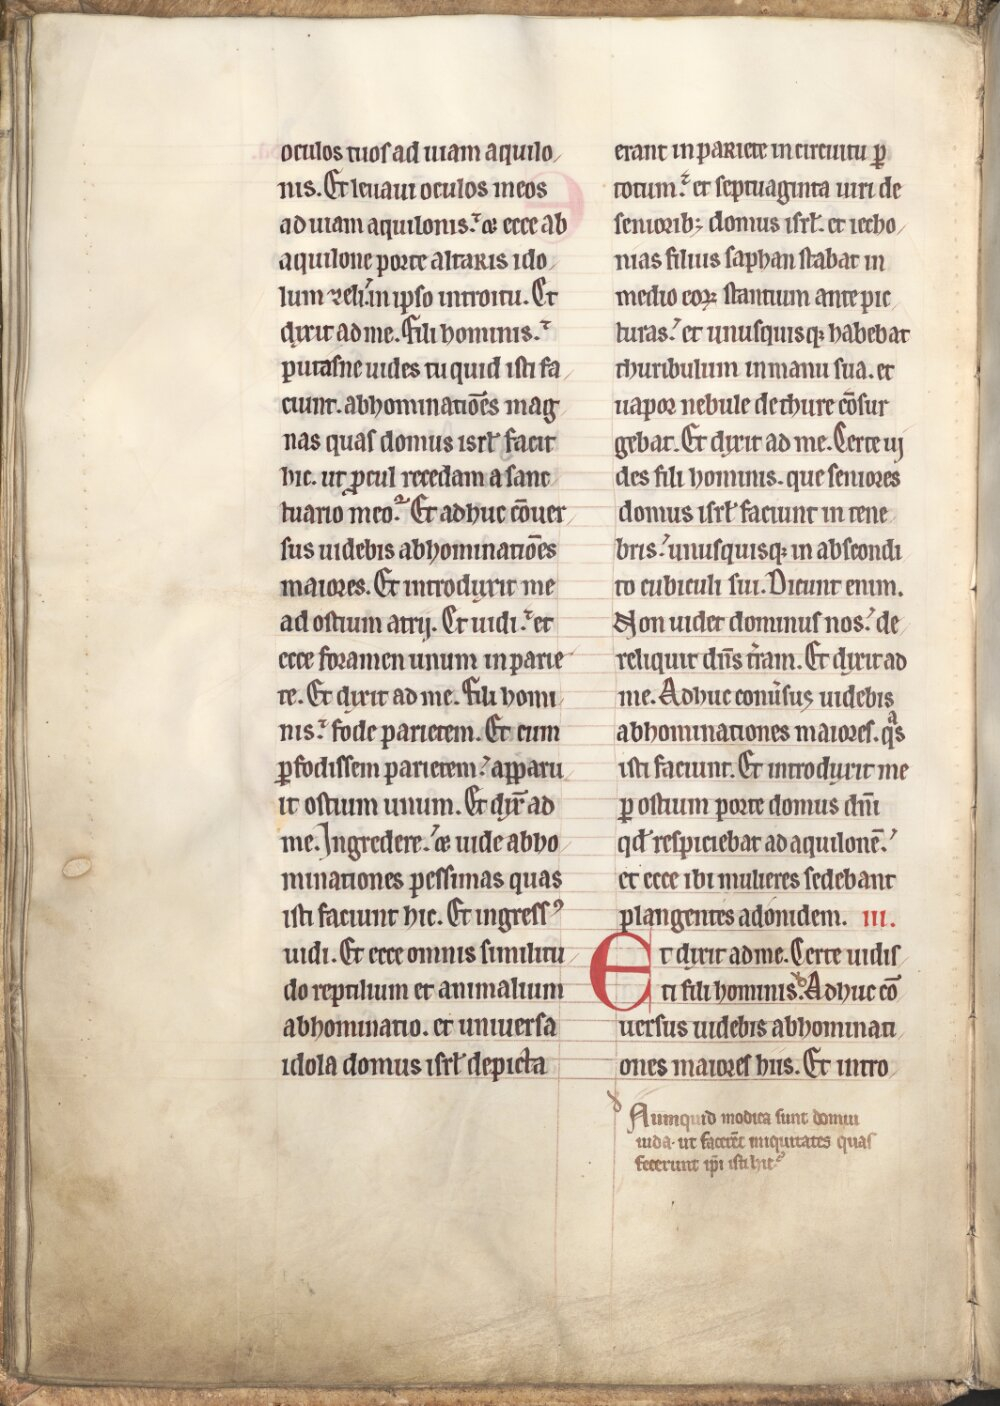 oculos tuos ad uiam aquilo
nis. Et leuaui oculos meos
ad uiam aquilonis. et ecce ab
aquilone porte altaris ido
lum zeli. in ipso introitu. Et
dixit ad me. Fili hominis.
putasne uides tu quid isti fa
ciunt. abhominatiōes mag
nas quas domus isrł facit
hic. ut ꝓcul recedam a sanc
tuario meo. Et adhuc cōuer
sus uidebis abhominatiōes
maiores. Et introduxit me
ad ostium atrij. Et uidi. et
ecce foramen unum in parie
te. Et dixit ad me. Fili homi
nis. fode parietem. Et cum
ꝑfodissem parietem. apparu
it ostium unum. Et dix̄ ad
me. Ingredere. et uide abho
minationes pessimas quas
isti faciunt hic. Et ingressꝰ
uidi. Et ecce omnis similitu
do reptilium et animalium
abhominatio. et uniuersa
idola domus isrł depicta
erant in pariete in circuitu ꝑ
totum. et septuaginta uiri de
senioribꝫ domus isrł. et iecho
nias filius saphan stabat in
medio eoꝝ stantium ante pic
turas. et unusquisqꝫ habebat
thuribulum in manu sua. et
uapor nebule de thure cōsur
gebat. Et dixit ad me. Certe ui
des fili hominis. que seniores
domus isrł faciunt in tene
bris. unusquisqꝫ in abscondi
to cubiculi sui. Dicunt enim.
Non uidet dominus nos. de
reliquit dn̄s t̄ram. Et dixit ad
me. Adhuc conūsus uidebis
abhominationes maiores. qᵃs
isti faciunt. Et introduxit me
ꝑ ostium porte domus dn̄i
qđ respiciebat ad aquilonē.
et ecce ibi mulieres sedebant
plangentes adonidem. III.
Et dixit ad me. Certe uidis
ti fili hominis. Adhuc cō
uersus uidebis abhominati
ones maiores hiis. Et intro
Numquid modica sunt domui
iuda. ut facerēt iniquitates quas
fecerunt ip̄i isti hic